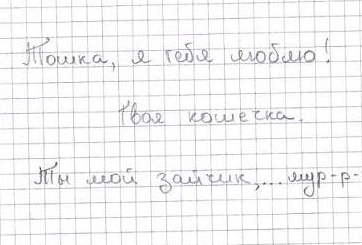 Тошка, я тебя люблю!
Твоя кошечка.
Ты мой зайчик,... мур-р-